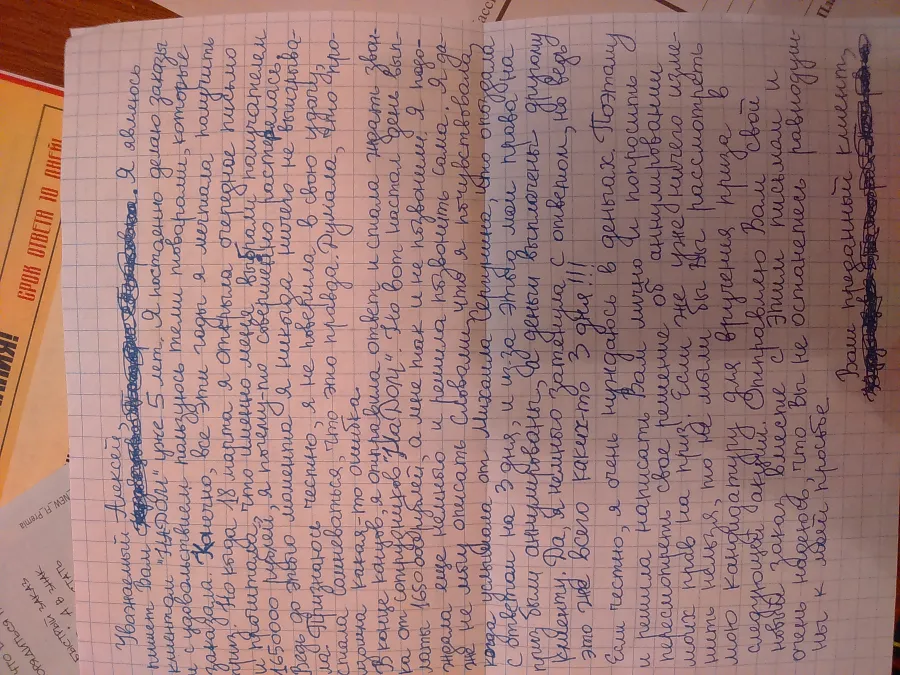 Уважаемый Алексей,
пишет Вам . Я являюсь
клиентом "НаДОМ" уже 5 лет. Я постоянно делаю заказы
и с удовольствием пользуюсь теми товарами, которые
заказала. Конечно, все эти годы я мечтала получить
приз. Но когда 18 марта я открыла очередное письмо
и прочитала, что именно меня выбрали получателем
1650000 рублей, я почему-то серьёзно растерялась.
Ведь до этого момента я никогда ничего не выигрыва-
ла. Признаюсь честно, я не поверила в свою удачу,
стала сомневаться, что это правда. Думала, что про-
изошла какая-то ошибка.
В конце концов, я отправила ответ и стала ждать звон-
ка от сотрудников "НаДом". Но вот настал день вып-
латы 1650000 рублей, а мне так и не позвонили. Я подо-
ждала еще немного и решила позвонить сама. Я да-
же не могу описать словами, что я почувствовала,
когда услышала от Михаила Чепурина, что опоздала
с ответом на 3 дня, и из-за этого мои права на
приз были аннулированы, а деньги выплачены другому
клиенту. Да, я немного затянула с ответом, но ведь
это же всего каких-то 3 дня!!!
Если честно, я очень нуждаюсь в деньгах. Поэтому
и решила написать Вам лично и попросить
пересмотреть свое решение об аннулировании
моих прав на приз. Если же уже ничего изме-
нить нельзя, то не могли бы Вы рассмотреть
мою кандидатуру для вручения приза в
следующей акции. Отправляю Вам свой
новый заказ вместе с этим письмом и
очень надеюсь, что Вы не останетесь равнодуш-
ны к моей просьбе
Ваш преданный клиент,
СРОК ОТВЕТА 10 ДНЕЙ
NEW_FL_Premia
БЫСТРЫЙ ЗАКАЗ